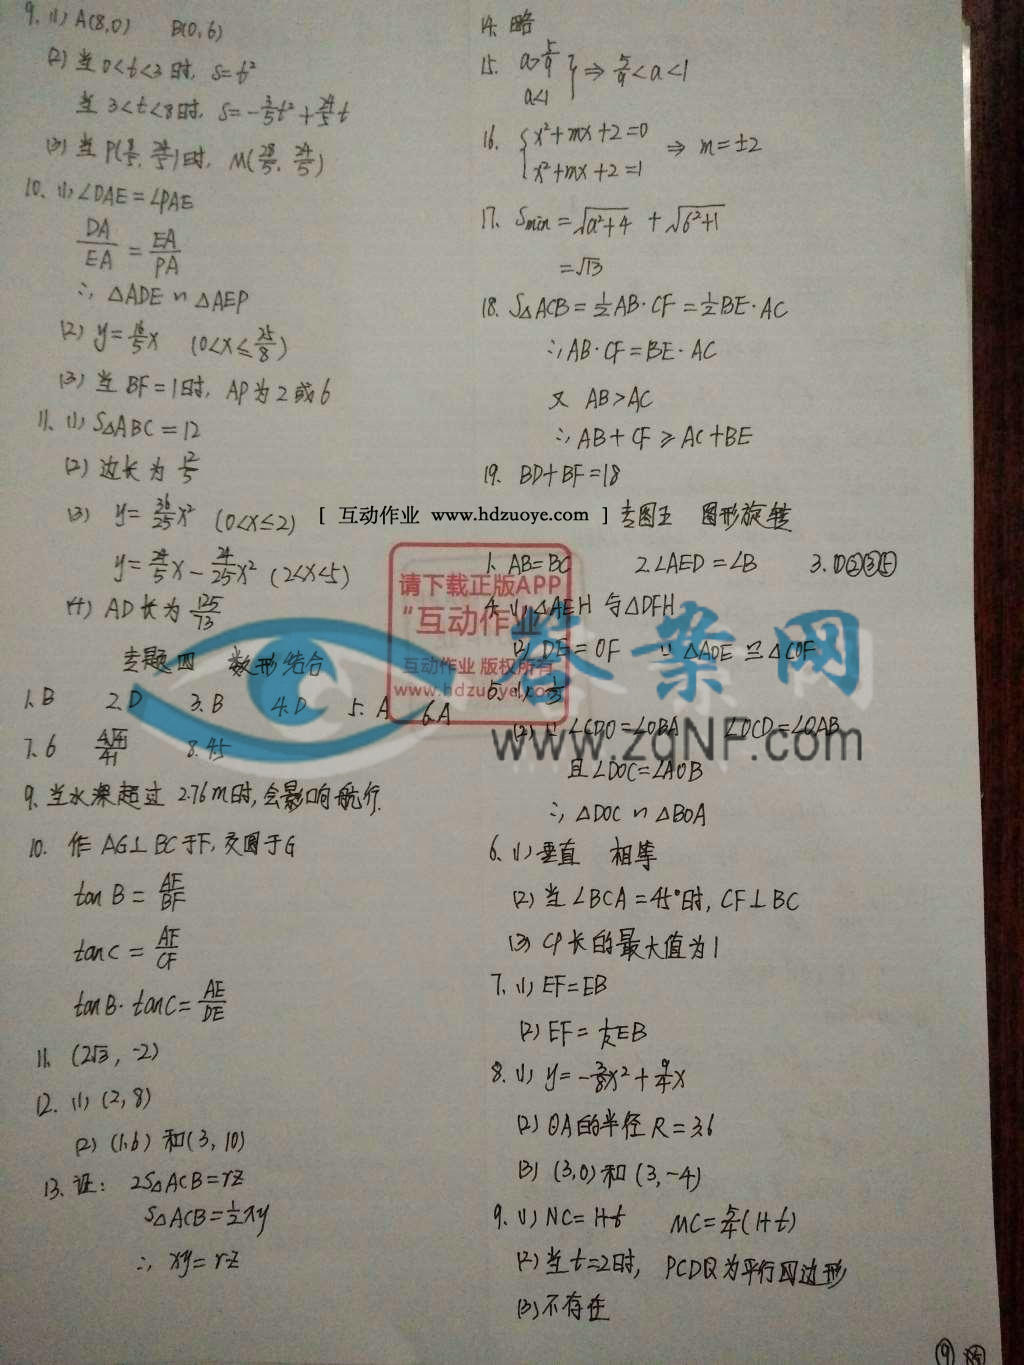 9. (1) A(8,0) B(0,6)
(2) 当 0<t<3 时, S=t²
当 3<t<8时, S=-3/5t²+24/5t
(3) 当 P(8/5, 24/5)时, M(28/5, 24/5)
10. (1) ∠DAE=∠PAE
DA/EA = EA/PA
∴ △ADE ∽ △AEP
(2) y=16/5x (0<x≤25/8)
(3) 当 BF=1时, AP为2或6
11. (1) S△ABC=12
(2) 边长为 12/5
(3) y=36/25x² (0<x≤2)
y=24/5x-24/25x² (2<x<5)
(4) AD长为 125/73
专题四 数形结合
1. B 2. D 3. B 4. D 5. A 6. A
7. 6 4√41/41 8. 4.5
9. 当水深超过 2.76m时,会影响航行.
10. 作 AG⊥BC于F,交圆于G
tanB = AF/BF
tanC = AF/CF
tanB·tanC = AE/DE
11. (2√3, -2)
12. (1) (2,8)
(2) (1,6) 和(3,10)
13. 证: 2S△ACB=rz
S△ACB=1/2xy
∴ xy=rz
14. 略
15. a>5/9
a<1 } ⇒ 5/9<a<1
16. { x²+mx+2=0
x²+mx+2=1 ⇒ m=±2
17. Smin=√a²+4 + √b²+1
=√13
18. S△ACB=1/2AB·CF=1/2BE·AC
∴AB·CF=BE·AC
又 AB>AC
∴AB+CF≥AC+BE
19. BD+BF=18
[ 互动作业 www.hdzuoye.com ] 专图五 图形旋转
1. AB=BC 2. ∠AED=∠B 3. ①②③⑤
4. (1) △AEH 与△DFH
(2) DE=OF ∵ △AOE≌△COF
5. (1) 1/3
(2) ∵ ∠CDO=∠OBA ∠OCD=∠OAB
且∠DOC=∠AOB
∴ △DOC ∽ △BOA
6. (1) 垂直 相等
(2) 当∠BCA=45°时, CF⊥BC
(3) CP长的最大值为1
7. (1) EF=EB
(2) EF=1/kEB
8. (1) y=-3/8x²+9/4x
(2) ⊙A的半径R=3.6
(3) (3,0)和(3,-4)
9. (1) NC=1+t MC=5/4(1+t)
(2) 当t=2时, PCDQ为平行四边形
(3) 不存在
请下载正版APP
“互动作业
互动作业 版权所有
www.hdzuoye.com
答案网
www.zqNF.com
⑨